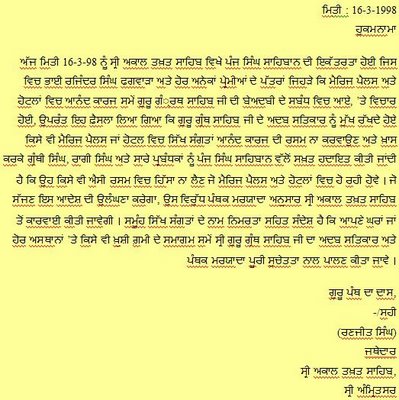 ਮਿਤੀ : 16-3-1998
ਹੁਕਮਨਾਮਾ
ਅੱਜ ਮਿਤੀ 16-3-98 ਨੂੰ ਸ੍ਰੀ ਅਕਾਲ ਤਖ਼ਤ ਸਾਹਿਬ ਵਿਖੇ ਪੰਜ ਸਿੰਘ ਸਾਹਿਬਾਨ ਦੀ ਇਕੱਤਰਤਾ ਹੋਈ ਜਿਸ
ਵਿਚ ਭਾਈ ਰਜਿੰਦਰ ਸਿੰਘ ਫਗਵਾੜਾ ਅਤੇ ਹੋਰ ਅਨੇਕਾਂ ਪ੍ਰੇਮੀਆਂ ਦੇ ਪੱਤਰਾਂ ਜਿਹੜੇ ਕਿ ਮੈਰਿਜ ਪੈਲਸ ਅਤੇ
ਹੋਟਲਾਂ ਵਿਚ ਆਨੰਦ ਕਾਰਜ ਸਮੇਂ ਗੁਰੂ ਗੰ੍ਰਥ ਸਾਹਿਬ ਜੀ ਦੀ ਬੇਅਦਬੀ ਦੇ ਸਬੰਧ ਵਿਚ ਆਏ, `ਤੇ ਵਿਚਾਰ
ਹੋਈ, ਉਪਰੰਤ ਇਹ ਫ਼ੈਸਲਾ ਲਿਆ ਗਿਆ ਕਿ ਗੁਰੂ ਗ੍ਰੰਥ ਸਾਹਿਬ ਜੀ ਦੇ ਅਦਬ ਸਤਿਕਾਰ ਨੂੰ ਮੁੱਖ ਰੱਖਦੇ ਹੋਏ
ਕਿਸੇ ਵੀ ਮੈਰਿਜ ਪੈਲਸ ਜਾਂ ਹੋਟਲ ਵਿਚ ਸਿੱਖ ਸੰਗਤਾਂ ਆਨੰਦ ਕਾਰਜ ਦੀ ਰਸਮ ਨਾ ਕਰਵਾਉਣ ਅਤੇ ਖ਼ਾਸ
ਕਰਕੇ ਗ੍ਰੰਥੀ ਸਿੰਘ, ਰਾਗੀ ਸਿੰਘ ਅਤੇ ਸਾਰੇ ਪ੍ਰਬੰਧਕਾਂ ਨੂੰ ਪੰਜ ਸਿੰਘ ਸਾਹਿਬਾਨ ਵੱਲੋਂ ਸਖ਼ਤ ਹਦਾਇਤ ਕੀਤੀ ਜਾਂਦੀ
ਹੈ ਕਿ ਉਹ ਕਿਸੇ ਵੀ ਐਸੀ ਰਸਮ ਵਿਚ ਹਿੱਸਾ ਨਾ ਲੈਣ ਜੋ ਮੈਰਿਜ ਪੈਲਸ ਅਤੇ ਹੋਟਲਾਂ ਵਿਚ ਹੋ ਰਹੀ ਹੋਵੇ । ਜੋ
ਸੱਜਣ ਇਸ ਆਦੇਸ਼ ਦੀ ਉਲੰਘਣਾ ਕਰੇਗਾ, ਉਸ ਵਿਰੁੱਧ ਪੰਥਕ ਮਰਯਾਦਾ ਅਨਸਾਰ ਸ੍ਰੀ ਅਕਾਲ ਤਖ਼ਤ ਸਾਹਿਬ
ਤੋਂ ਕਾਰਵਾਈ ਕੀਤੀ ਜਾਵੇਗੀ । ਸਮੂੰਹ ਸਿੱਖ ਸੰਗਤਾਂ ਦੇ ਨਾਮ ਨਿਮਰਤਾ ਸਹਿਤ ਸੰਦੇਸ਼ ਹੈ ਕਿ ਆਪਣੇ ਘਰਾਂ ਜਾਂ
ਹੋਰ ਅਸਥਾਨਾਂ `ਤੇ ਕਿਸੇ ਵੀ ਖ਼ੁਸ਼ੀ ਗ਼ਮੀ ਦੇ ਸਮਾਗਮ ਸਮੇਂ ਸ੍ਰੀ ਗੁਰੂ ਗ੍ਰੰਥ ਸਾਹਿਬ ਜੀ ਦਾ ਅਦਬ ਸਤਿਕਾਰ ਅਤੇ
ਪੰਥਕ ਮਰਯਾਦਾ ਪੂਰੀ ਸੁਚੇਤਤਾ ਨਾਲ ਪਾਲਣ ਕੀਤਾ ਜਾਵੇ ।
ਗੁਰੂ ਪੰਥ ਦਾ ਦਾਸ,
-/ਸਹੀ
(ਰਣਜੀਤ ਸਿੰਘ)
ਜਥੇਦਾਰ
ਸ੍ਰੀ ਅਕਾਲ ਤਖ਼ਤ ਸਾਹਿਬ,
ਸ੍ਰੀ ਅੰਮ੍ਰਿਤਸਰ